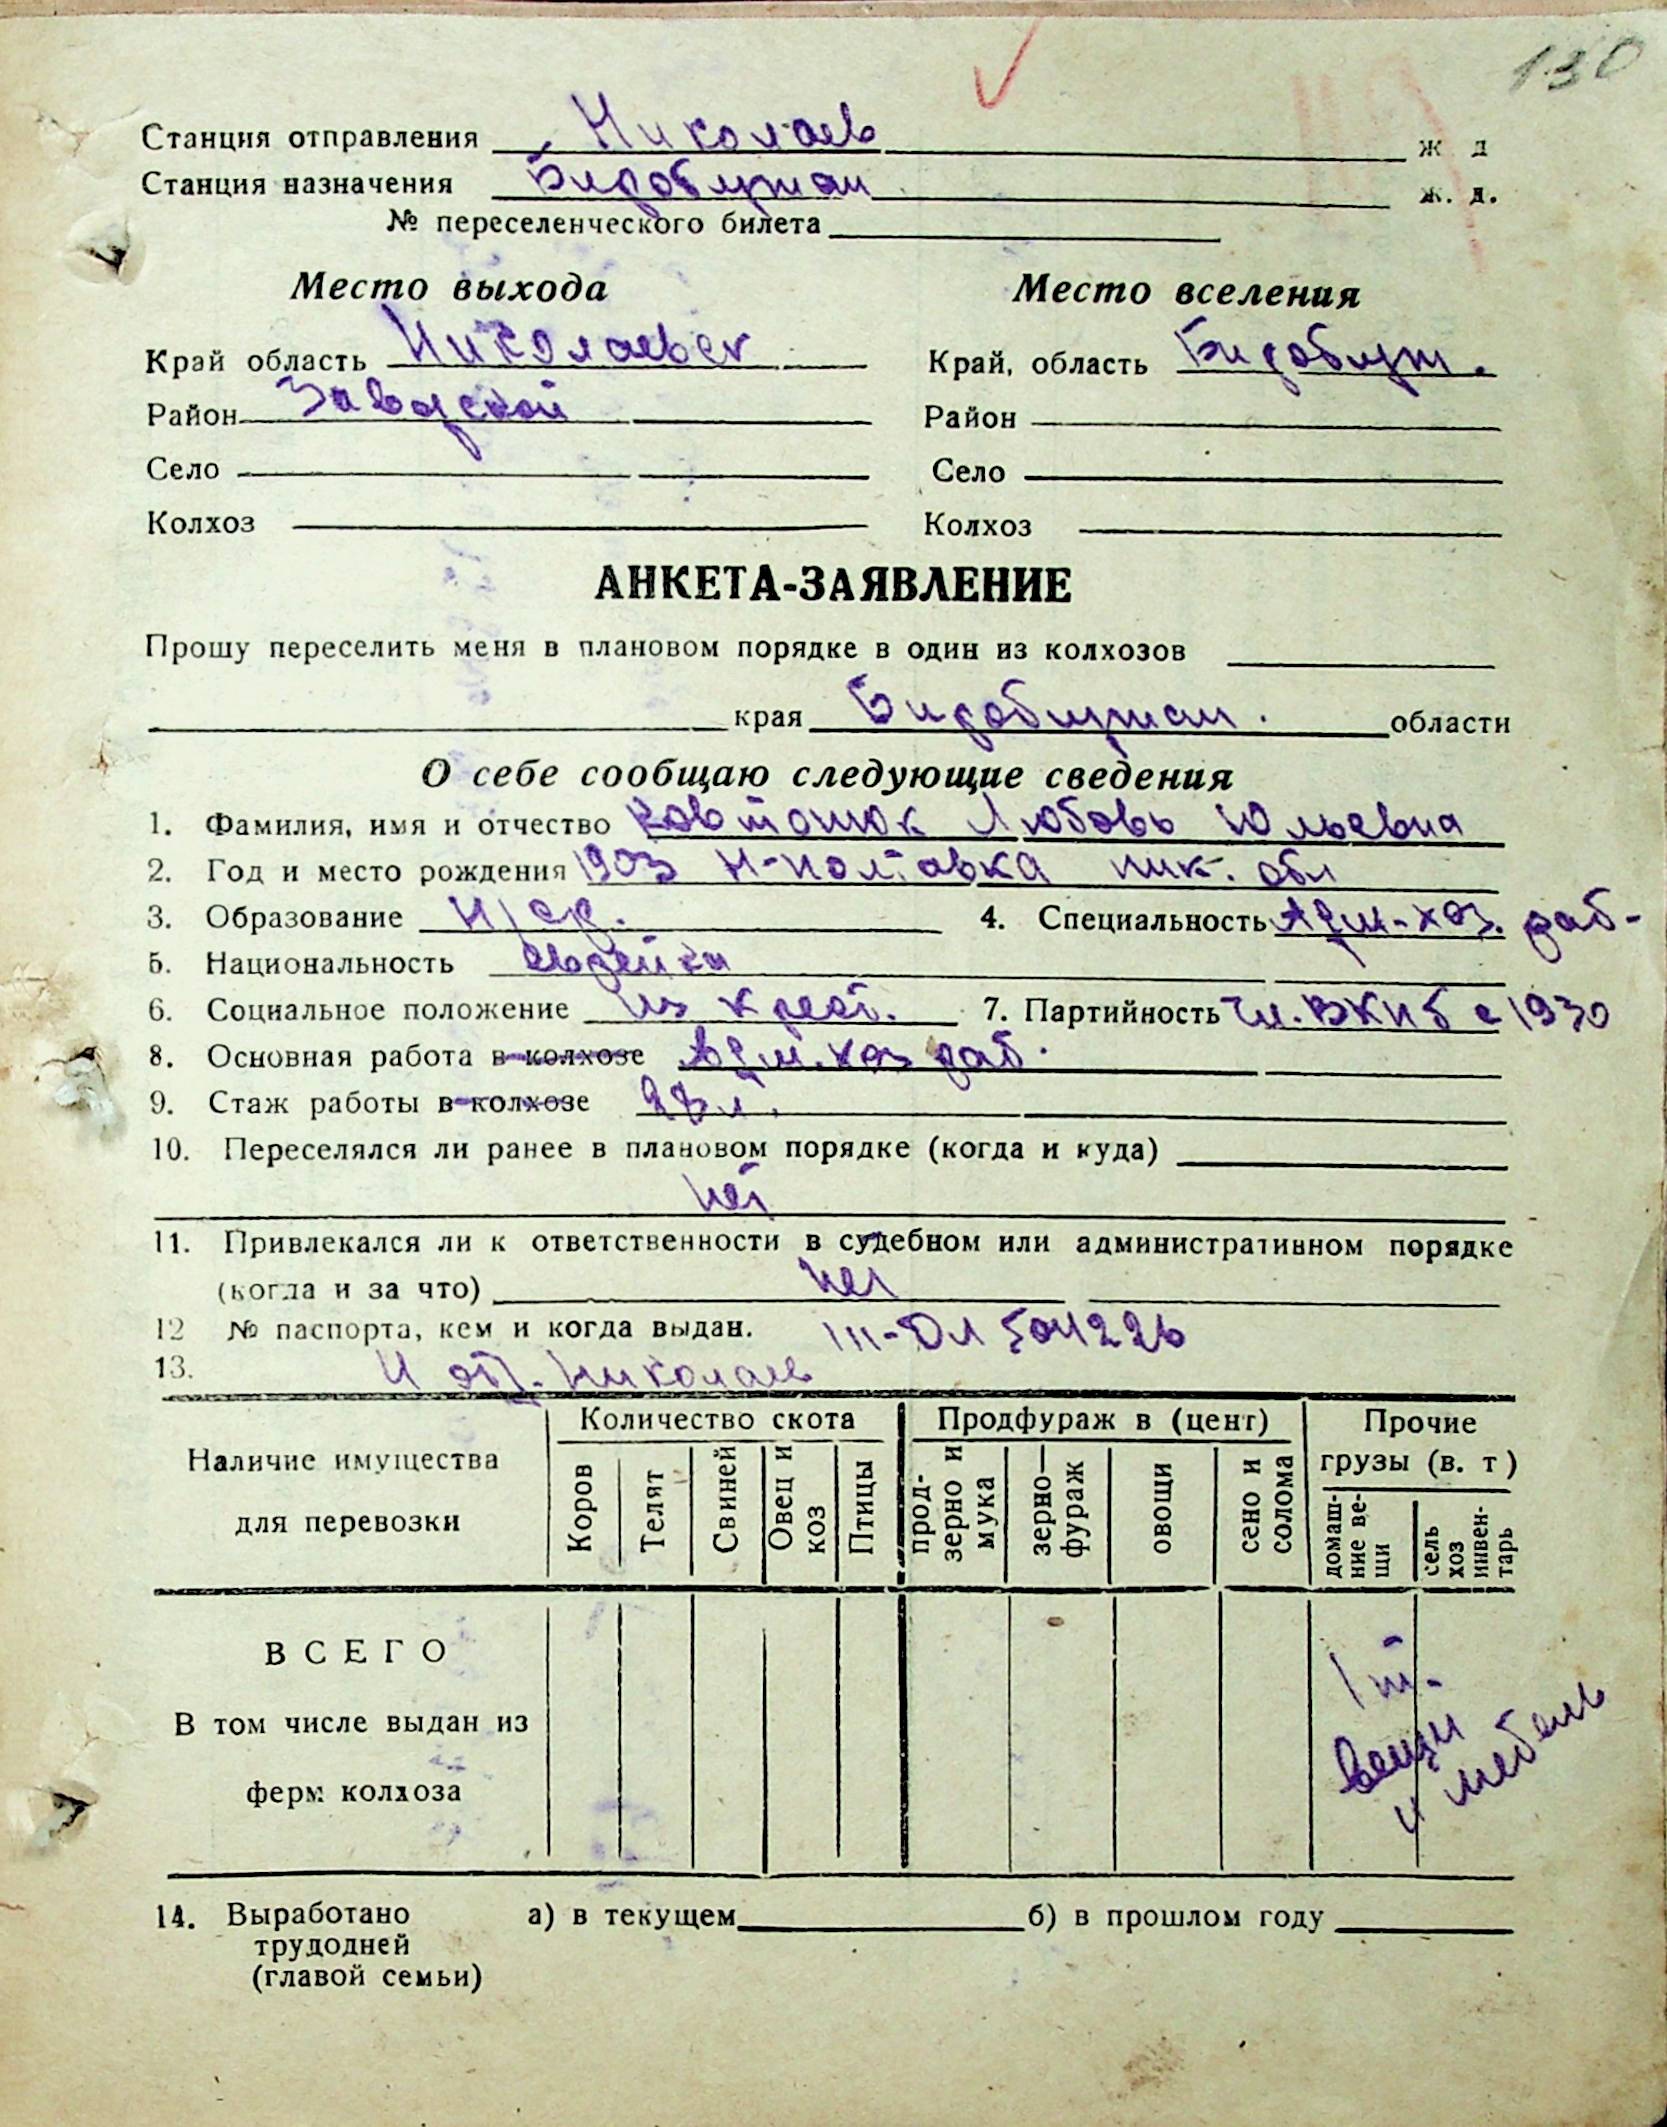 130
Станция отправления Николаев ж д
Станция назначения Биробиджан ж. д.
№ переселенческого билета
Место выхода Место вселения
Край область Николаевск Край, область Биробидж.
Район Заводской Район
Село Село
Колхоз Колхоз
АНКЕТА-ЗАЯВЛЕНИЕ
Прошу переселить меня в плановом порядке в один из колхозов
края Биробиджан. области
О себе сообщаю следующие сведения
1. Фамилия, имя и отчество Любовь Юльевна
2. Год и место рождения 1903 Н-Полтавка ник. обл
3. Образование н/ср. 4. Специальность Адм-хоз. раб-
5. Национальность еврейка
6. Социальное положение из крест. 7. Партийность чл. ВКПб с 1930
8. Основная работа в колхозе адм. хоз раб.
9. Стаж работы в колхозе л.
10. Переселялся ли ранее в плановом порядке (когда и куда)
нет
11. Привлекался ли к ответственности в судебном или административном порядке
(когда и за что) нет
12 № паспорта, кем и когда выдан. III-ОЛ
13. отд. Николаев
Наличие имущества для перевозки
Количество скота
Продфураж в (цент)
Прочие грузы (в. т)
Коров
Телят
Свиней
Овец и коз
Птицы
прод-зерно и мука
зерно-фураж
овощи
сено и солома
домаш-ние ве-щи
сель хоз инвен-тарь
ВСЕГО
1 т.
вещи
и мебель
В том числе выдан из
ферм колхоза
14. Выработано а) в текущем б) в прошлом году
трудодней
(главой семьи)